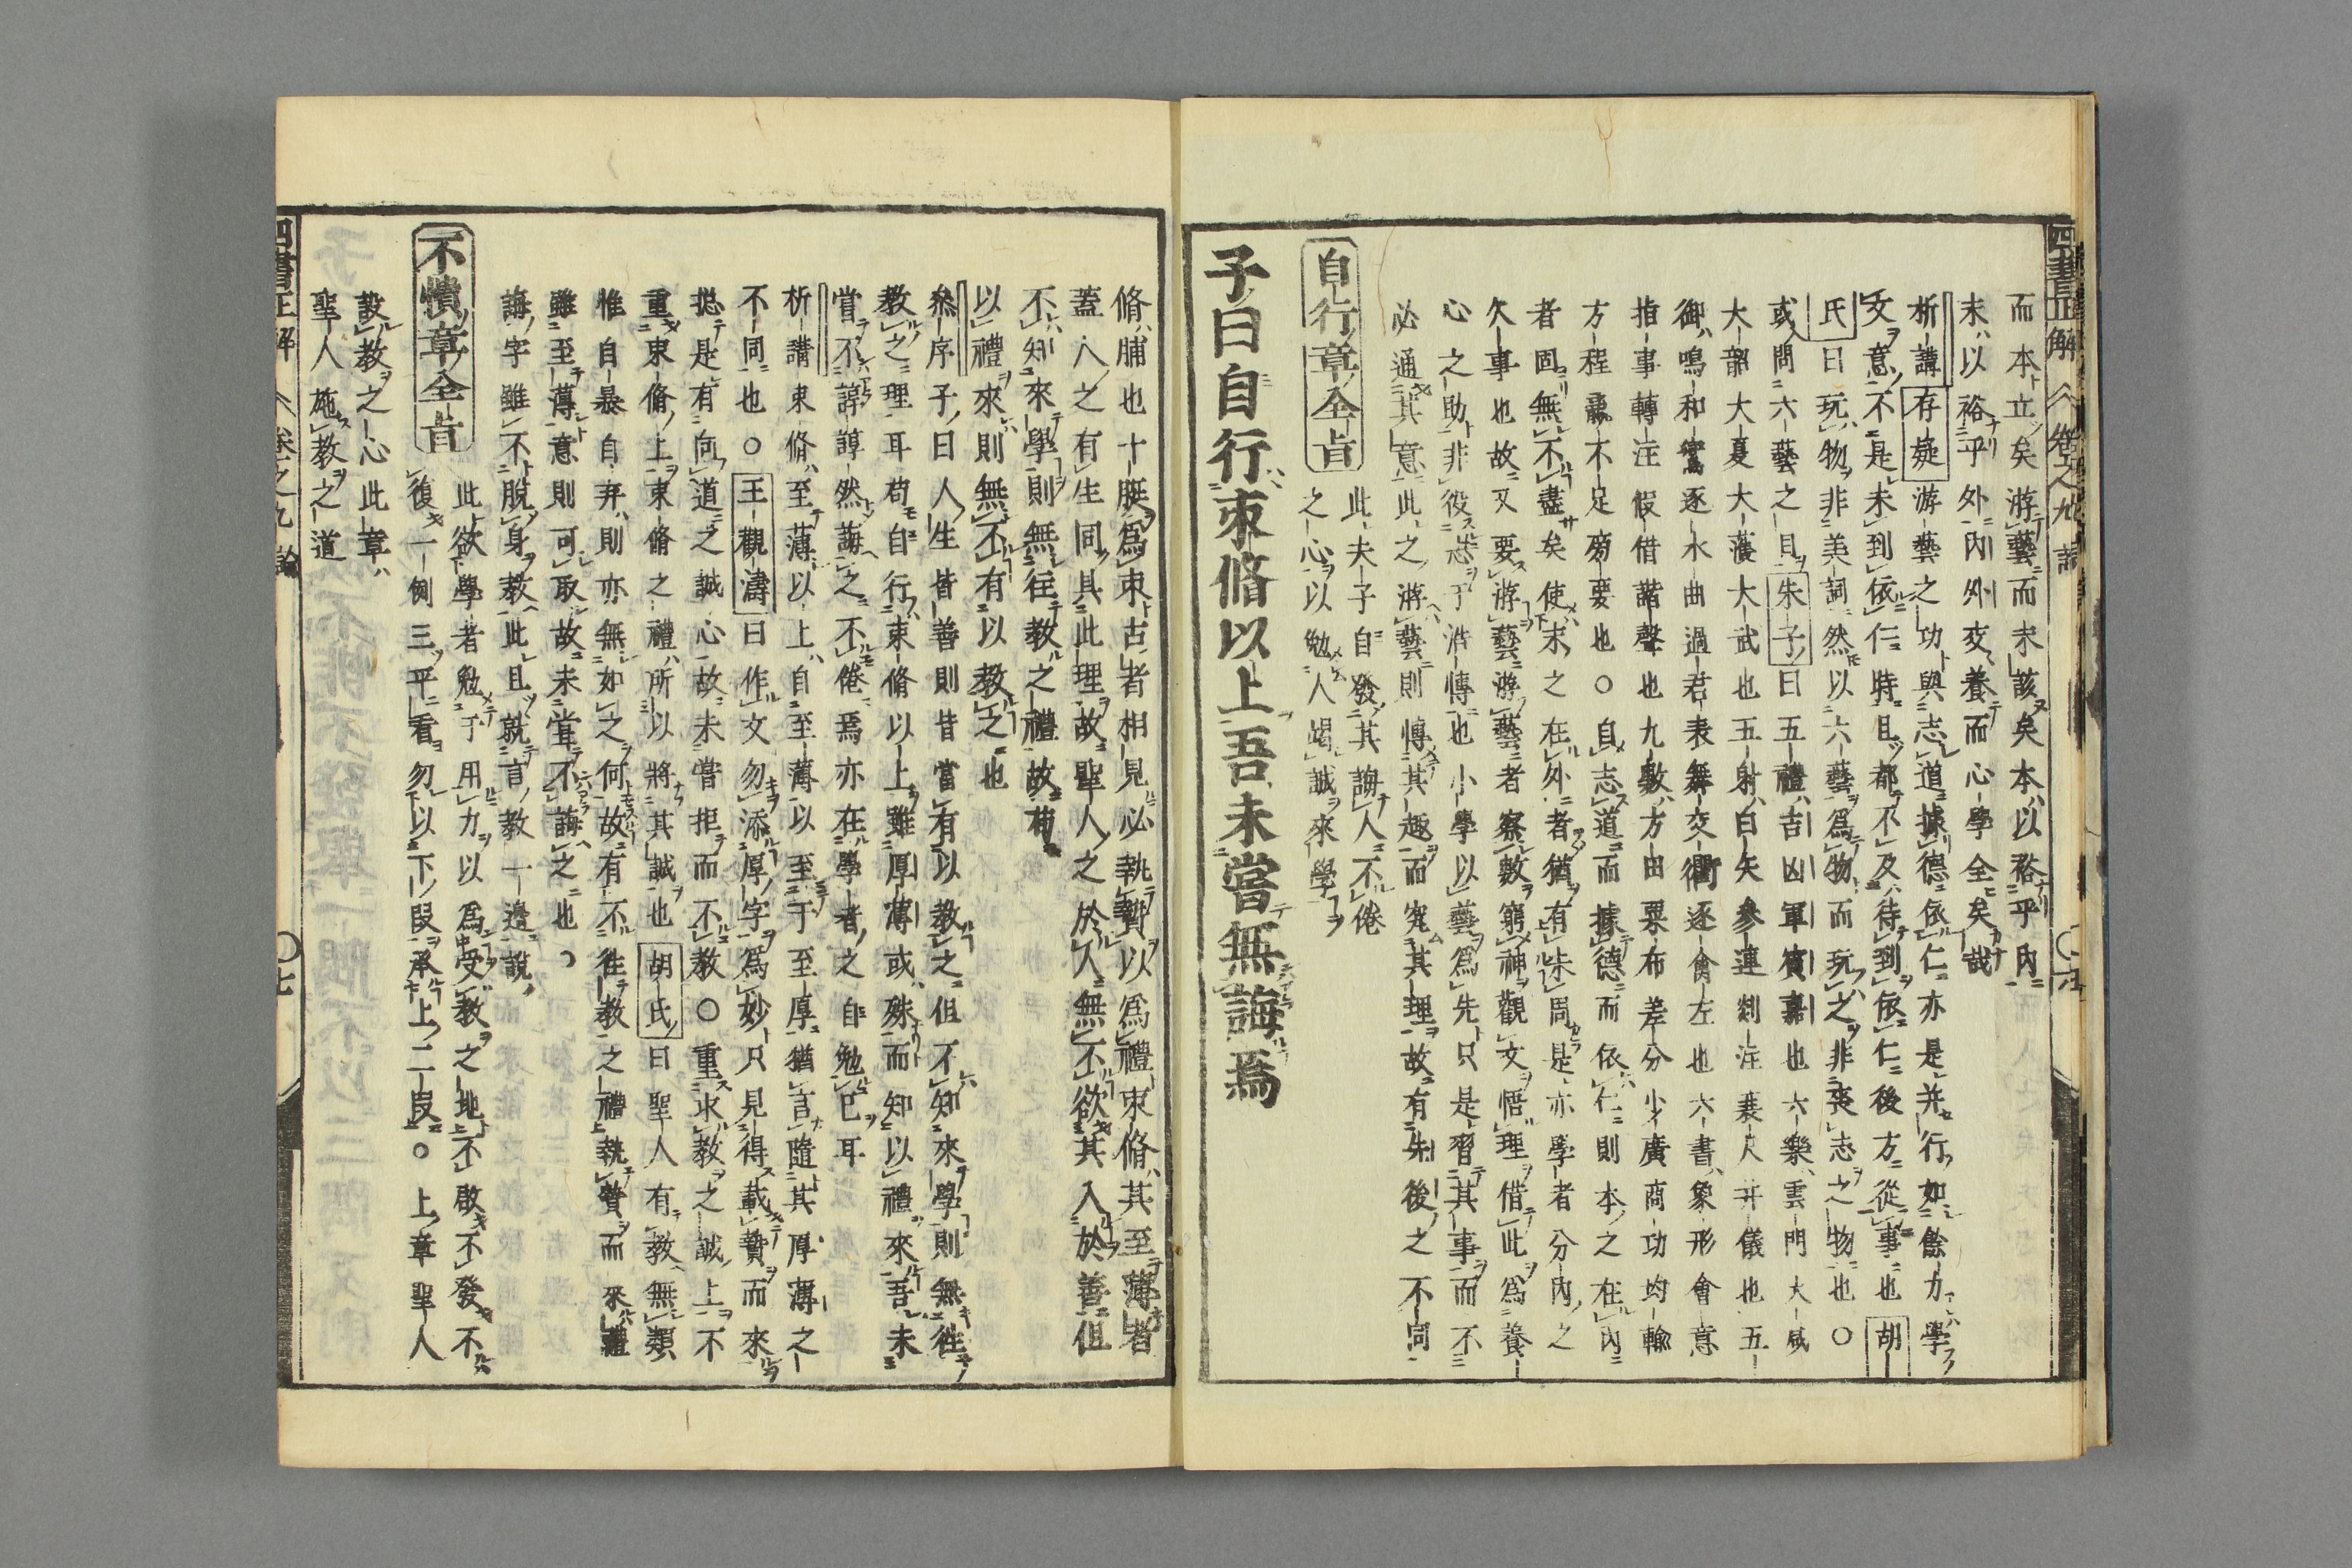 四書正解 卷之九 論 ○六
而本立矣游藝而末該矣本以裕乎內
末以裕乎外內外交養而心學全矣哉
析講 存疑 游藝之功與志道據德依仁亦是并行如餘力學
文意不是未到依仁時且都不及待到依仁後方從事也 胡
氏 曰玩物非美詞然以六藝為物而玩之非喪志之物也○
或問六藝之目 朱子 曰五禮吉凶軍賓嘉也六樂雲門大咸
大韶大夏大濩大武也五射白矢參連剡注襄尺井儀也五
御鳴和鸞逐水曲過君表舞交衢逐禽左也六書象形會意
指事轉注假借諧聲也九數方田粟布差分少廣商功均輸
方程贏不足旁要也○自志道而據德而依仁則本之在內
者固無不盡矣使末之在外者猶有未周是亦學者分內之
欠事也故又要游藝游藝者察數窮神觀文悟理借此為養
心之助非役志于浩慱也小學以藝為先只是習其事而不
必通其意此之游藝則慱其趣而究其理故有先後之不同
自行章全旨 此夫子自發其誨人不倦
之心以勉人竭誠來學
子曰自行束脩以上吾未嘗無誨焉
脩脯也十脡為束古者相見必執贄以為禮束脩其至薄者
蓋人之有生同具此理故聖人之於人無不欲其入於善但
不知來學則無往教之禮故苟
以禮來則無不有以教之也
叅序 子曰人生皆善則皆當有以教之但不知來學則無往
教之理耳苟自行束脩以上雖厚薄或殊而知以禮來吾未
嘗不諄諄然誨之不倦焉亦在學者之自勉巳耳
析講 束脩至薄以上自至薄以至于至厚猶言隨其厚薄之
不同也○ 王觀濤 曰作文勿添厚字為妙只見得載贄而來
㧾是有向道之誠心故未嘗拒而不教○重求教之誠上不
重束脩上束脩之禮所以將其誠也 胡氏 曰聖人有教無類
惟自暴自弃則亦無如之何故有不徃教之禮執贄而來禮
雖至薄意則可取故未嘗不誨之也○
誨字雖不脫身教此且就言教一邊說
不憤章全旨 此欲學者勉于用力以為受教之地不啟不發不
復一例三平看勿以下叚承上二叚○上章聖人
設教之心此章
聖人施教之道
四書正解 卷之九 論 ○七